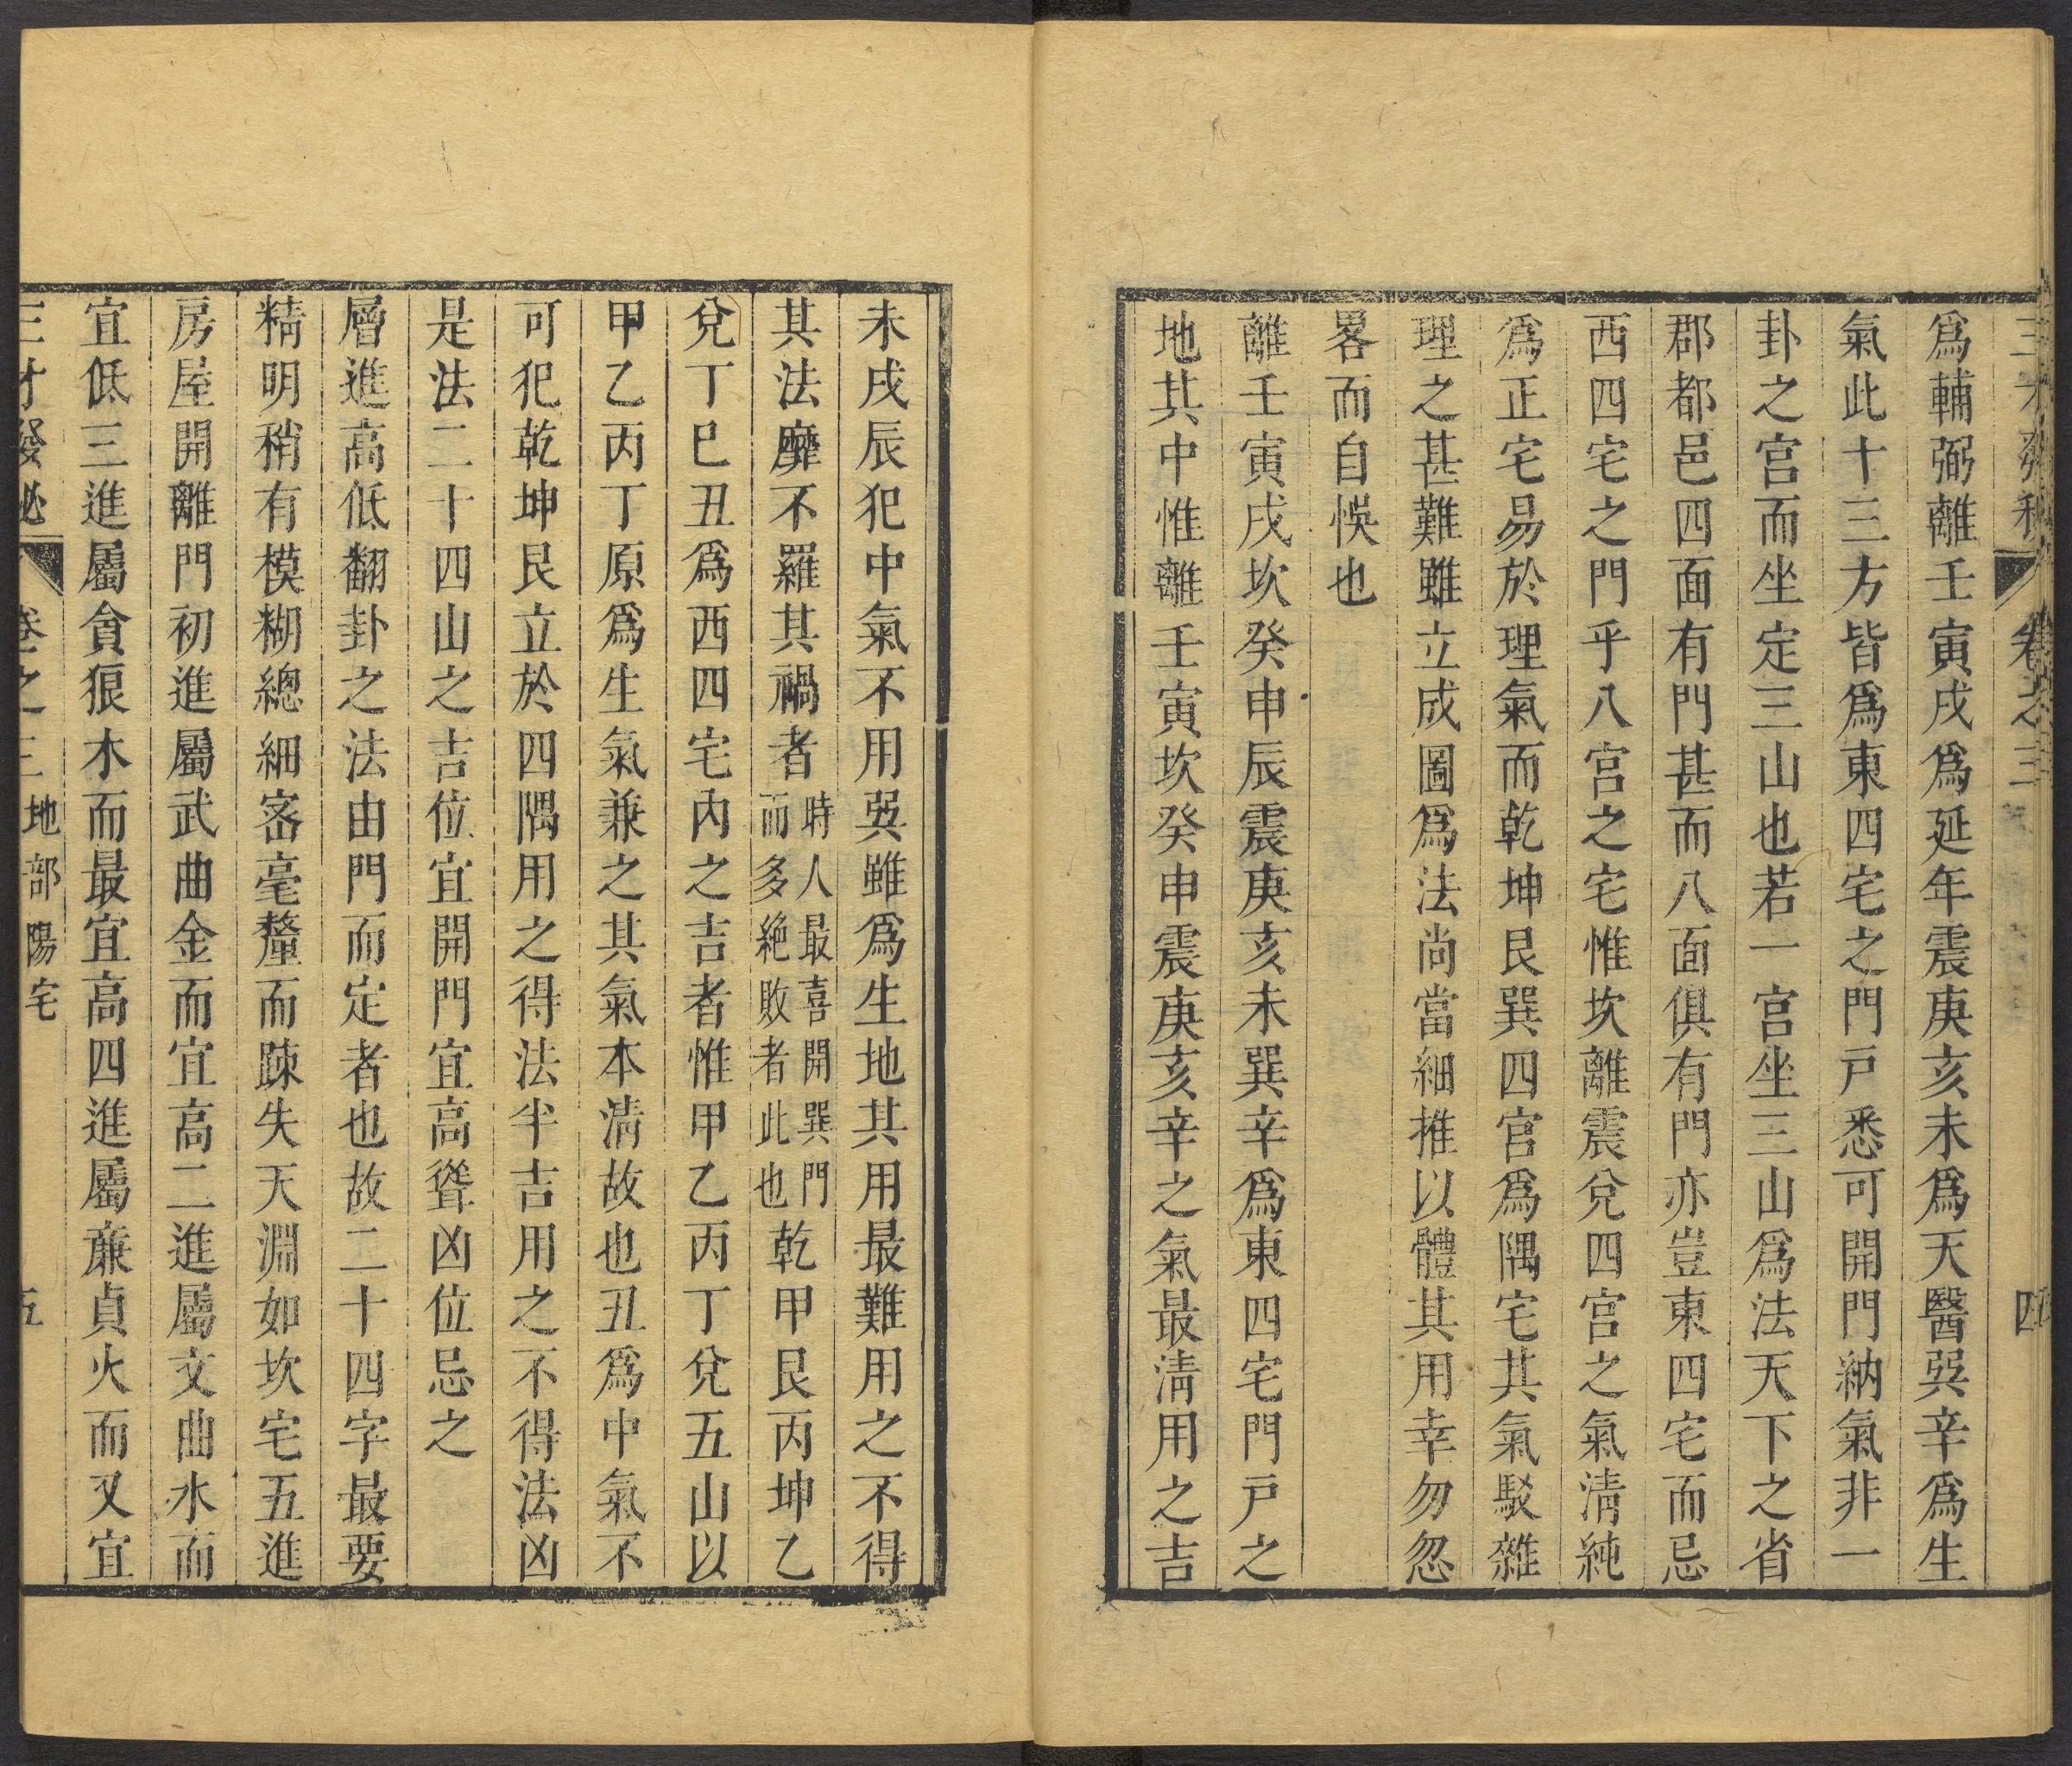 三才發秘 卷之三 四
爲輔弼離壬寅戌爲延年震庚亥未爲天醫巽辛爲生
氣此十三方皆爲東四宅之門戸悉可開門納氣非一
卦之宫而坐定三山也若一宫坐三山爲法天下之省
郡都邑四面有門甚而八面俱有門亦豈東四宅而忌
西四宅之門乎八宫之宅惟坎離震兌四宫之氣清純
爲正宅易於理氣而乾坤艮巽四宫爲隅宅其氣駁雜
理之甚難雖立成圖爲法尚當細推以體其用幸勿忽
畧而自悞也
離壬寅戌坎癸申辰震庚亥未巽辛爲東四宅門戸之
地其中惟離壬寅坎癸申震庚亥辛之氣最清用之吉
未戌辰犯中氣不用巽雖爲生地其用最難用之不得
其法靡不羅其禍者時人最喜開巽門而多絶敗者此也乾甲艮丙坤乙
兌丁巳丑爲西四宅内之吉者惟甲乙丙丁兌五山以
甲乙丙丁原爲生氣兼之其氣本清故也丑爲中氣不
可犯乾坤艮立於四隅用之得法半吉用之不得法凶
是法二十四山之吉位宜開門宜高聳凶位忌之
層進高低翻卦之法由門而定者也故二十四字最要
精明稍有模糊總細宻毫釐而踈失天淵如坎宅五進
房屋開離門初進屬武曲金而宜高二進屬文曲水而
宜低三進屬貪狼木而最宜高四進屬亷貞火而又宜
三才發秘 卷之三 地部 陽宅 五